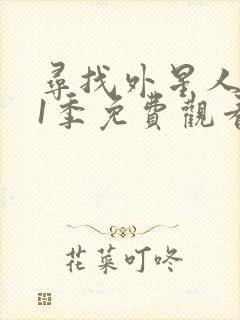 尋找外星人
1季免費觀看
花菜叮咚